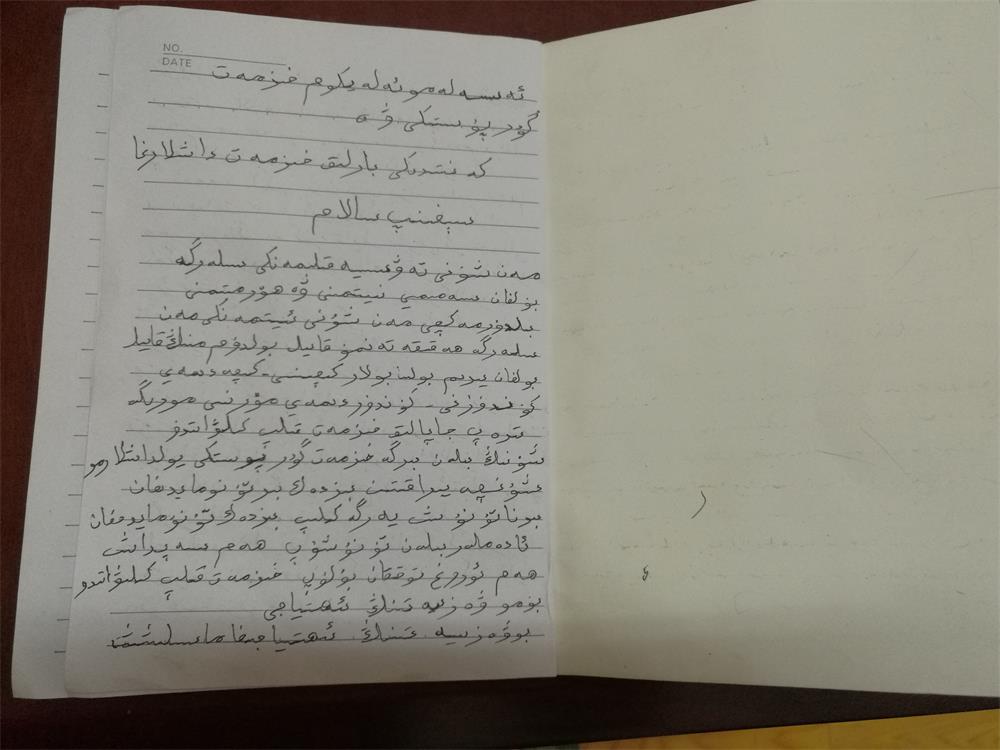 NO.
DATE
ئەسسەلەمۇئەلەيكوم خىزمەت
گۇرۇپۇستىكى ۋە
كەنتىدىكى بارلىق خىزمەت داشلارغا
سېغىنىپ سالام
مەن شۇنى تەۋسىيە قىلىمەنكى سىلەرگە
بۇلغان سەمىمىي نىيتىمنى ۋە ھۆرمىتىمنى
بىلدۈرمەكچى مەن شۇنى ئېيتىمەنكى مەن
سىلەرگە ھەقىقەتەنمۇ قايىل بولدۇم مىنىڭ قايىل
بولغان يىرىم بولسا بولار كېچىنى - كېچە دىمەي
كۈندۈزنى - كۈندۈز دىمەي مۆرىنى مۆرىگە
تىرەپ جاپالىق خىزمەت قىلىپ كىلىۋاتىدۇ
شۇنىڭ بىلەن بىرگە خىزمەت گۇرۇپۇستىكى يولداشلارمۇ
شۇنچە يىراقتىن بىزدەك بىر تۇنۇمايدىغان
بوناتۇنۇش يەرگە كىلىپ بىزدەك تۇنۇمايدىغان
ئادەملەر بىلەن تۇنۇشۇپ ھەم سەپداش
ھەم ئۇرۇغ تۇققان بۇلۇپ خىزمەت قىلىپ كىلىۋاتىدۇ
بۇمۇ ۋەزىيەتنىڭ ئېھتىياجى
بۇ ۋەزىيەتنىڭ ئېھتىياجىغا ماسلىشىش